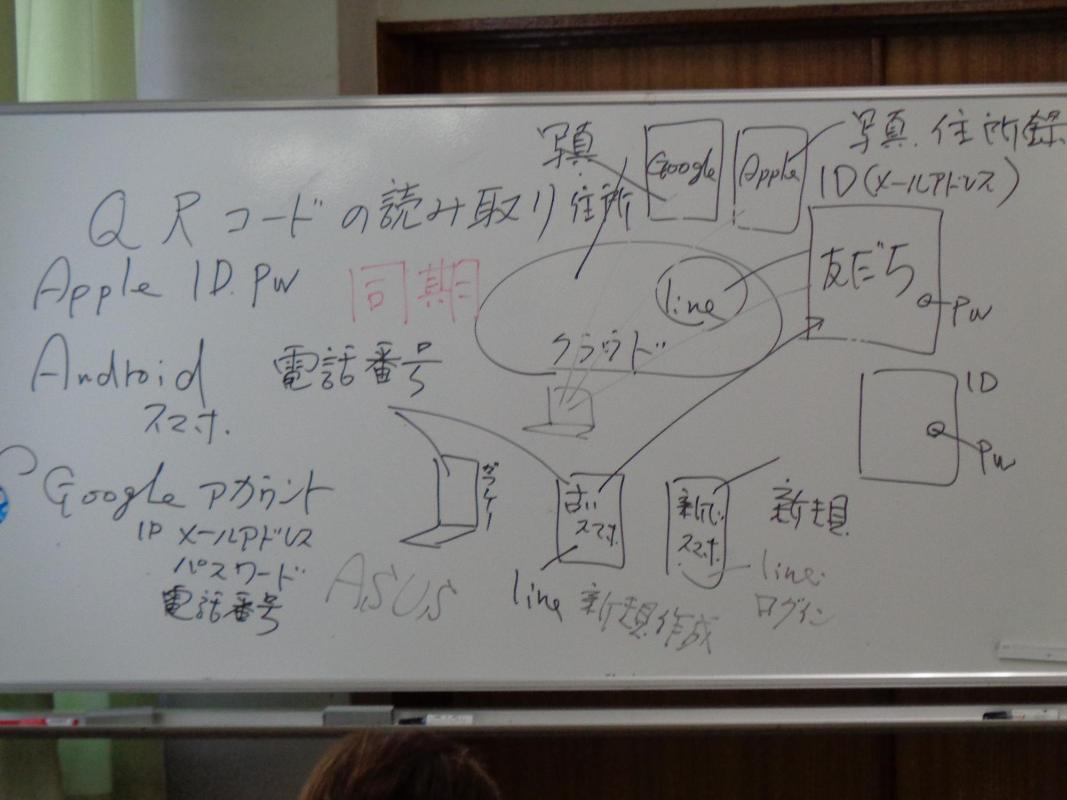 写真
Google
Apple
写真.住所録
ID(メールアドレス)
QRコードの読み取り
住所
Apple ID.PW
同期
line
友だち
PW
クラウド
Android
スマホ.
電話番号
ID
PW
Googleアカウント
ID メールアドレス
パスワード
電話番号
ガラケー
古い
スマホ
新しい
スマホ
新規
ASUS
line 新規作成
line.
ログイン